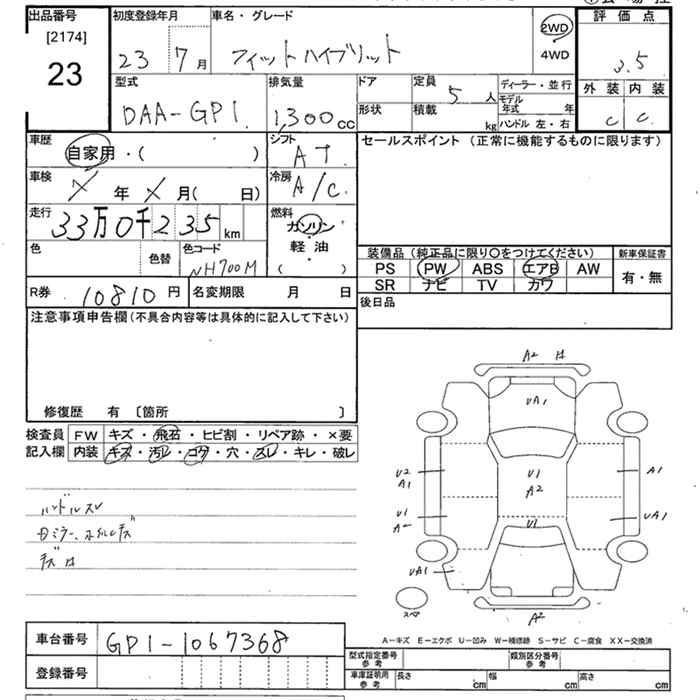 出品番号
[2174]
23
初度登録年月
23 7 月
車名・グレード
フィットハイブリット
2WD
4WD
評価点
3.5
外装 内装
C C
型式
DAA-GP1
排気量
1,300 cc
ドア
形状
定員
5 人
積載
kg
ディーラー・並行
モデル年式 年
ハンドル 左・右
車歴
自家用・( )
シフト
AT
車検
年 月( 日)
冷房
A/C
走行
33万0千235 km
燃料
ガソリン
軽油
( )
色
色替
色コード
NH700M
R券 10810 円
名変期限 月 日
セールスポイント (正常に機能するものに限ります)
装備品 (純正品に限り○をつけてください)
PS PW ABS エアB AW
SR ナビ TV カワ
新車保証書
有・無
後日品
注意事項申告欄(不具合内容等は具体的に記入して下さい)
修復歴 有 〔箇所 〕
検査員記入欄
FW キズ・飛石・ヒビ割・リペア跡・×要
内装 キズ・汚レ・コゲ・穴・スレ・キレ・破レ
ハンドルスレ
A2
UA1
U2
A1
U1
A2
A1
U1
A2
UA1
U1
UA1
スペア
A2
A－キズ E－エクボ U－凹み W－補修跡 S－サビ C－腐食 XX－交換済
車台番号 GP1-1067368
登録番号
型式指定番号 参考
類別区分番号 参考
車庫証明用 参考
長さ cm
幅 cm
高さ cm